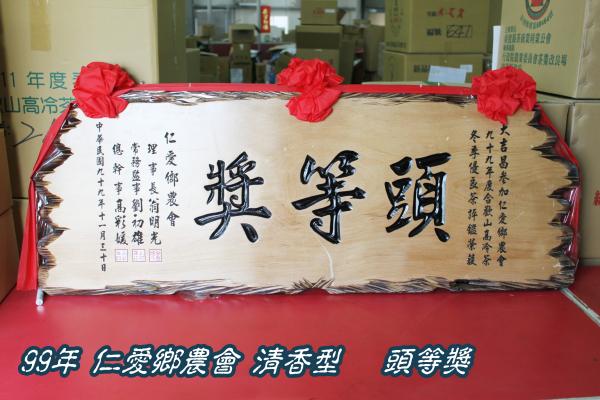 大吉昌参加仁愛鄉農會
九十九年度合歡山高冷茶
冬季優良茶評鑑榮獲
頭等獎
仁愛鄉農會
理事長翁明光
常務監事劉初雄
總幹事高彩媛
中華民國九十九年十一月三十日
11年度
山高冷茶
99年 仁愛鄉農會 清香型 頭等獎